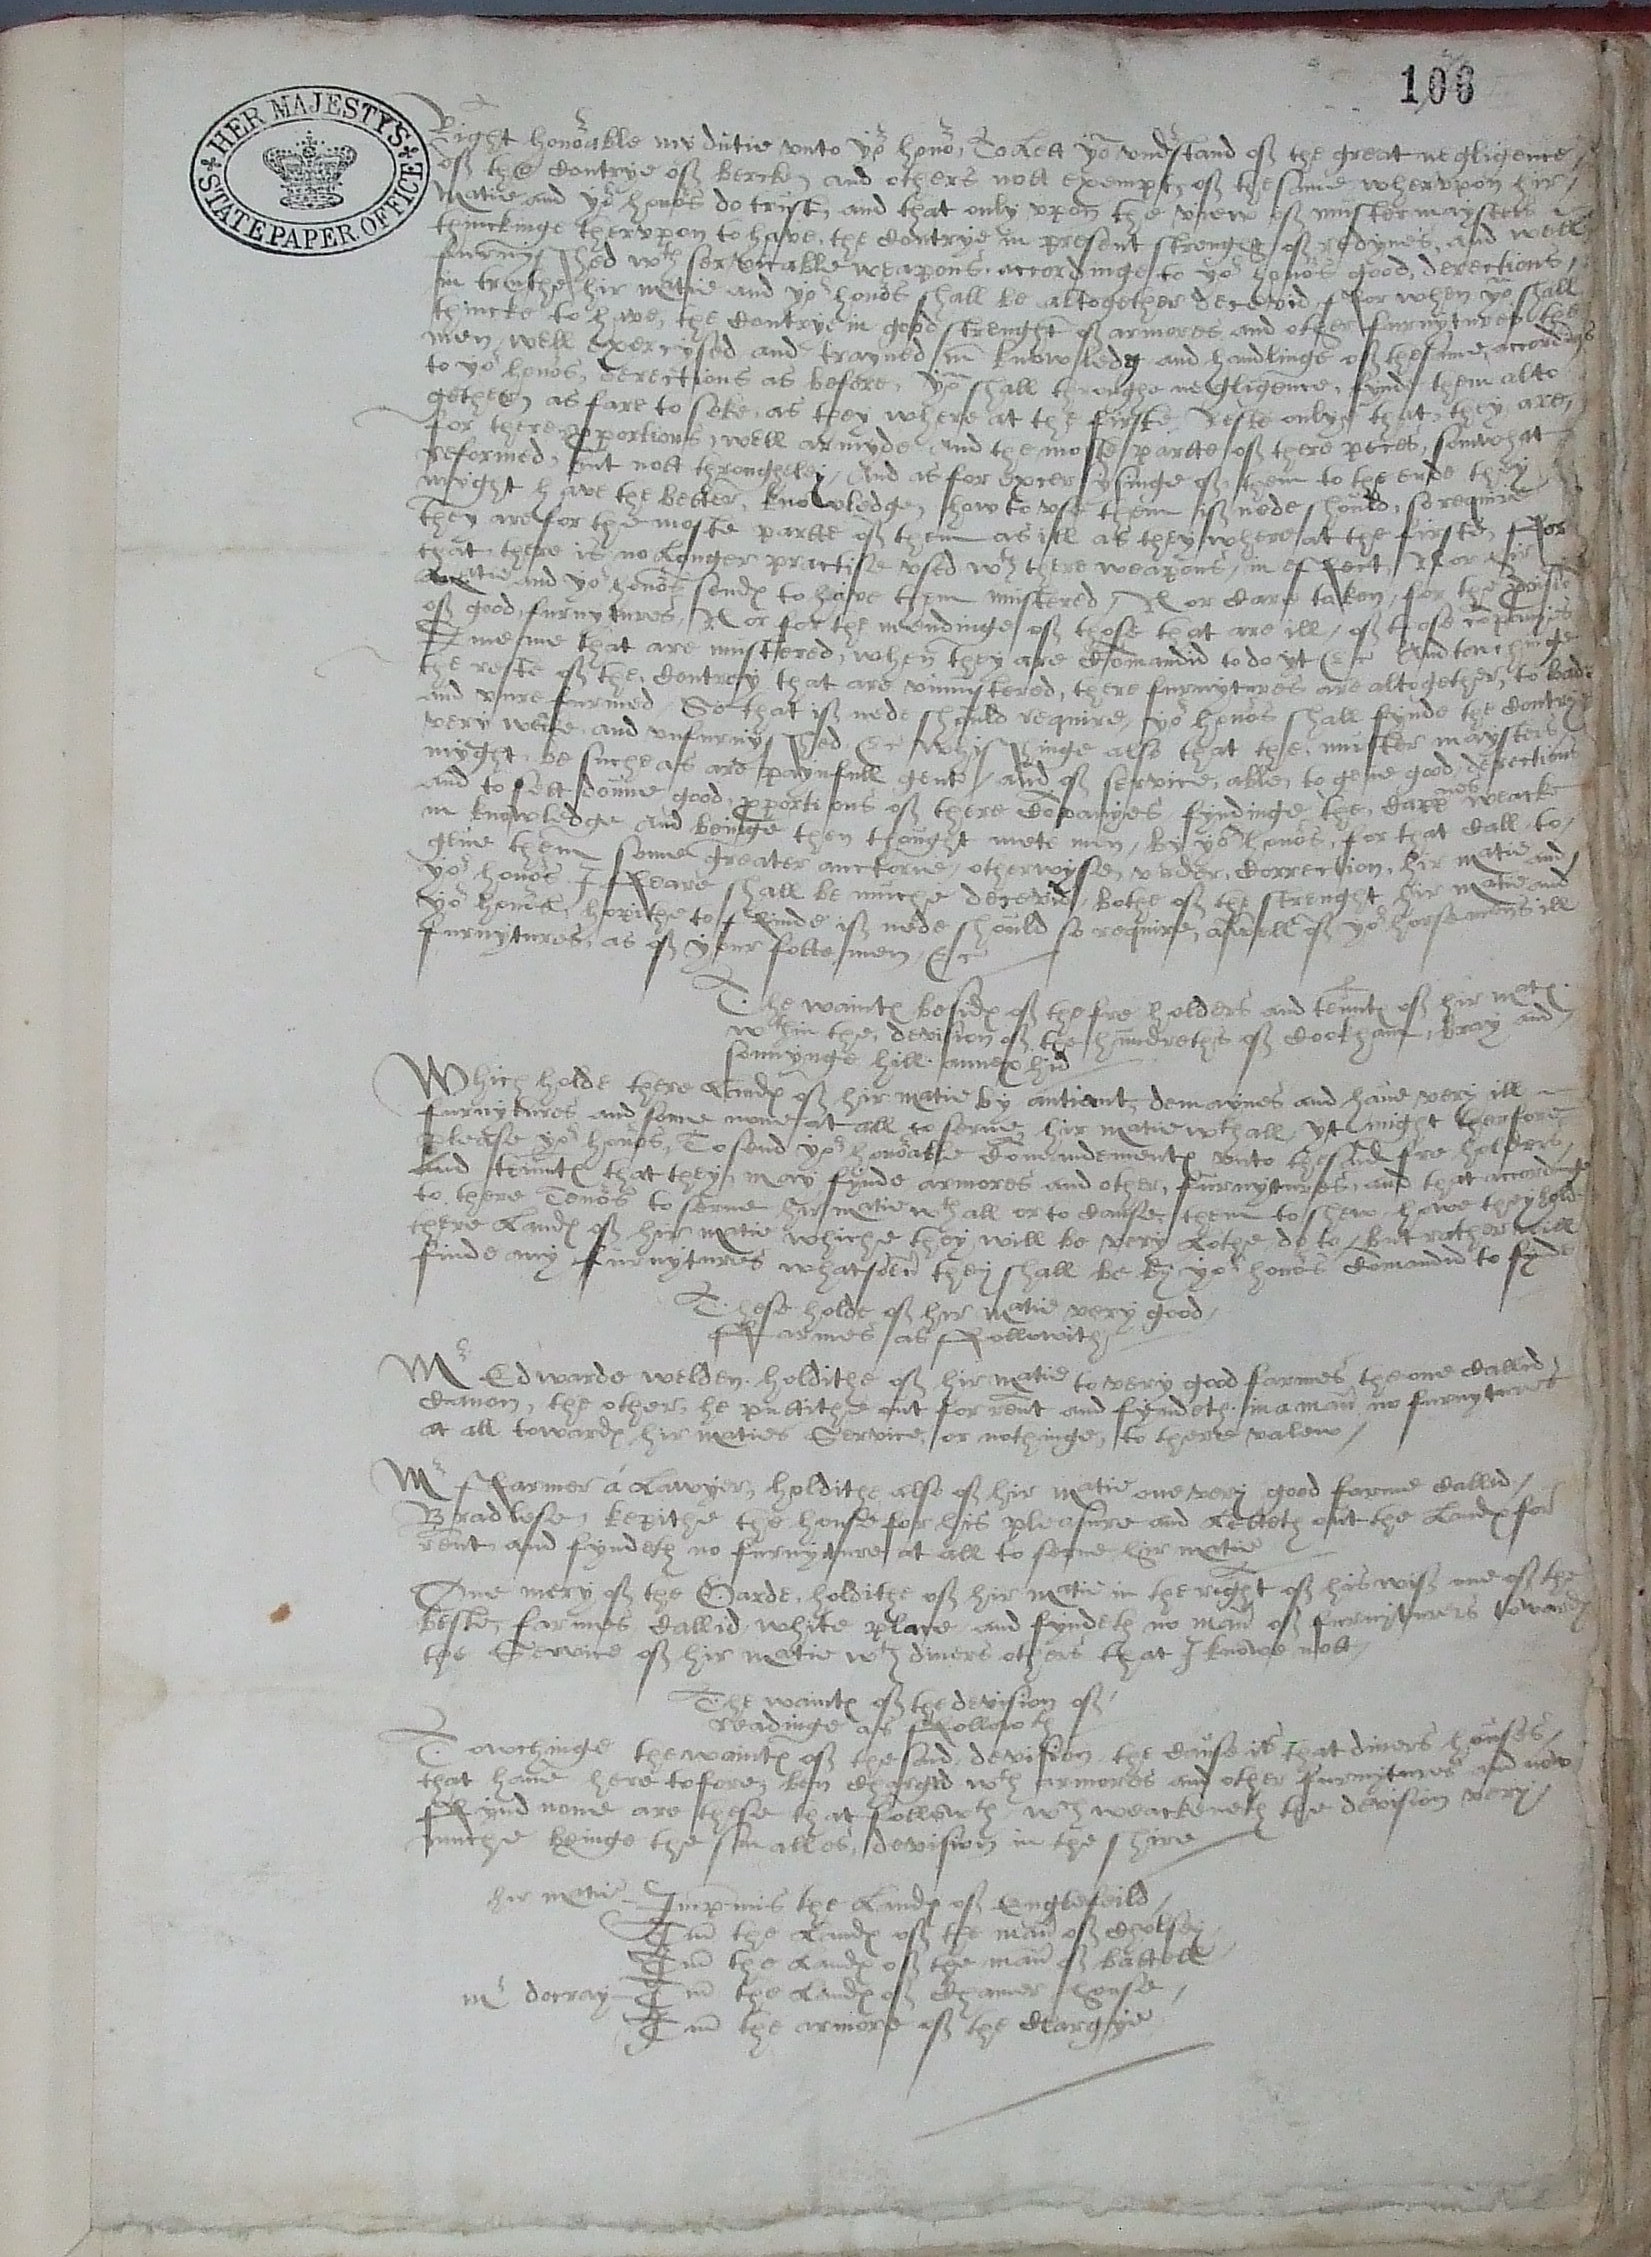 108
HER MAJESTY'S STATE PAPER OFFICE
Right honorable my dutie unto yor honor, To Lett you understand of the great negligence
of the Contrye of Bercks and others nott exempt, of the same, wherupon hir
Matie and yor honors do trust, and that only upon the view of muster maysters
thinckinge therupon to have, the Contrye in present strenght of redynes, and well
furnyshed wth servicable weapons accordinge to yor honors good derections,
in truthe hir matie and yor honors shall be altogether decevid, For when you shall
thincke to have, the Contrye in good strenght of armores and other furnytures, the
men well exercysed and trayned in knowledg and handlinge of the same, accordinge
to yor honors, derections as before, you shall throughe negligence, fynde them alto
gether as fare to seke, as they where at the firste, Reste only that, they are,
for there proportions, well armyde and the moste partte of there peces, somwhat
reformed, but nott throughely, And as for exercysinge of them to the ende they
myght have the better, knowledge, how to use them if nede should, so require
They are for the moste partte of them as ill as they where at the firste, For
that there is no Longer practise used wth there weapons, in effect, Nor hir
matie and yor honors send to have them mustered, Nor Care taken, for the
of good furnytures, Nor for the mendinge of those that are ill, of those companyes
I mene that are mustered, when they are Comandid to do yt &c And touchinge
the reste of the, Contrey that are unmustered, there furnytures are altogether, to bade
and unreformed, So that if nede should require, yor honors shall fynde the Contrye
very weke and unfurnyshed &c Whishinge also that the, muster maysters,
myght be suche as are paynfull gents, and of service, able, to geve good derections
and to sett doune good, proportions of there Companyes, fyndinge the, Capnes weacke
in knowledge And beinge then thought mete men, By yor honors, for that Call, to
geve them some greater aucktorie, otherwyse, under, Correction, hir matie and
yor honors I Feare shall be muche decevid, bothe of the strenght hir matie and
yor honors, hopithe to Finde if nede should so require, aswell of yor horsemens ill
furnytures, as of your fottemen &c
The wants besides of the fre holders and tennts of hir mats
wthin the, devision of the hundreths of Cookham, Bray and
sonnynge hill annexhid
Which holde there Lands of hir matie by antient, demaynes and have very ill
furnytures and some none at all to serve, hir matie wthall, yt might therfore
please yor honors, To send yor honorable Comandements unto the said fre holders,
And tennts that they may fynde armores and other, furnytures, and that accordinge
to there Tenors to serve hir matie wth all or to Cause, them to shew howe they holde
there Lands of hir matie whiche they will be very Lothe do to, but rather will
finde any furnytures whatsoever they shall be by yor honors Comandid to fynde
These holde of hir matie very good
Farmes as Followith
Mr Edwarde welden holdithe of hir matie to very good farmes the one Callid
Canon, the other, he puttithe out for rent and fyndeth in a maner no furnyture
at all towards hir maties Service, or nothinge, to there valew,
Mr Farmer a Lawyer, holdithe also of hir matie one very good farme Callid,
Bradlese, kepithe the house for his pleasure and Letteth out the Lands for
rent and fyndeth no furnyture at all to serve hir matie
One mery of the Garde, holdithe of hir matie in the right of his wiff one of the
beste, farmes Callid, white place and fyndeth no maner of furnytures towards
the Service of hir matie wth divers others that I knowe nott,
The wants of the devision of
Readinge as Followth
Towchinge the wants of the said devision the Cause is that divers houses,
that have here tofore, ben Chargid wth armores and other furnytures and now
Fynd none are these that followth, wch weackeneth the devision very,
muche beinge the smalles, devision in the shire
hir matie Imprimis the Lands of Englefeild,
Itm the Lands of the manr of Cholsey
Itm the Lands of the manr of Battell
mr docray Itm the Lands of Chamer house,
Itm the armore of the Clargye